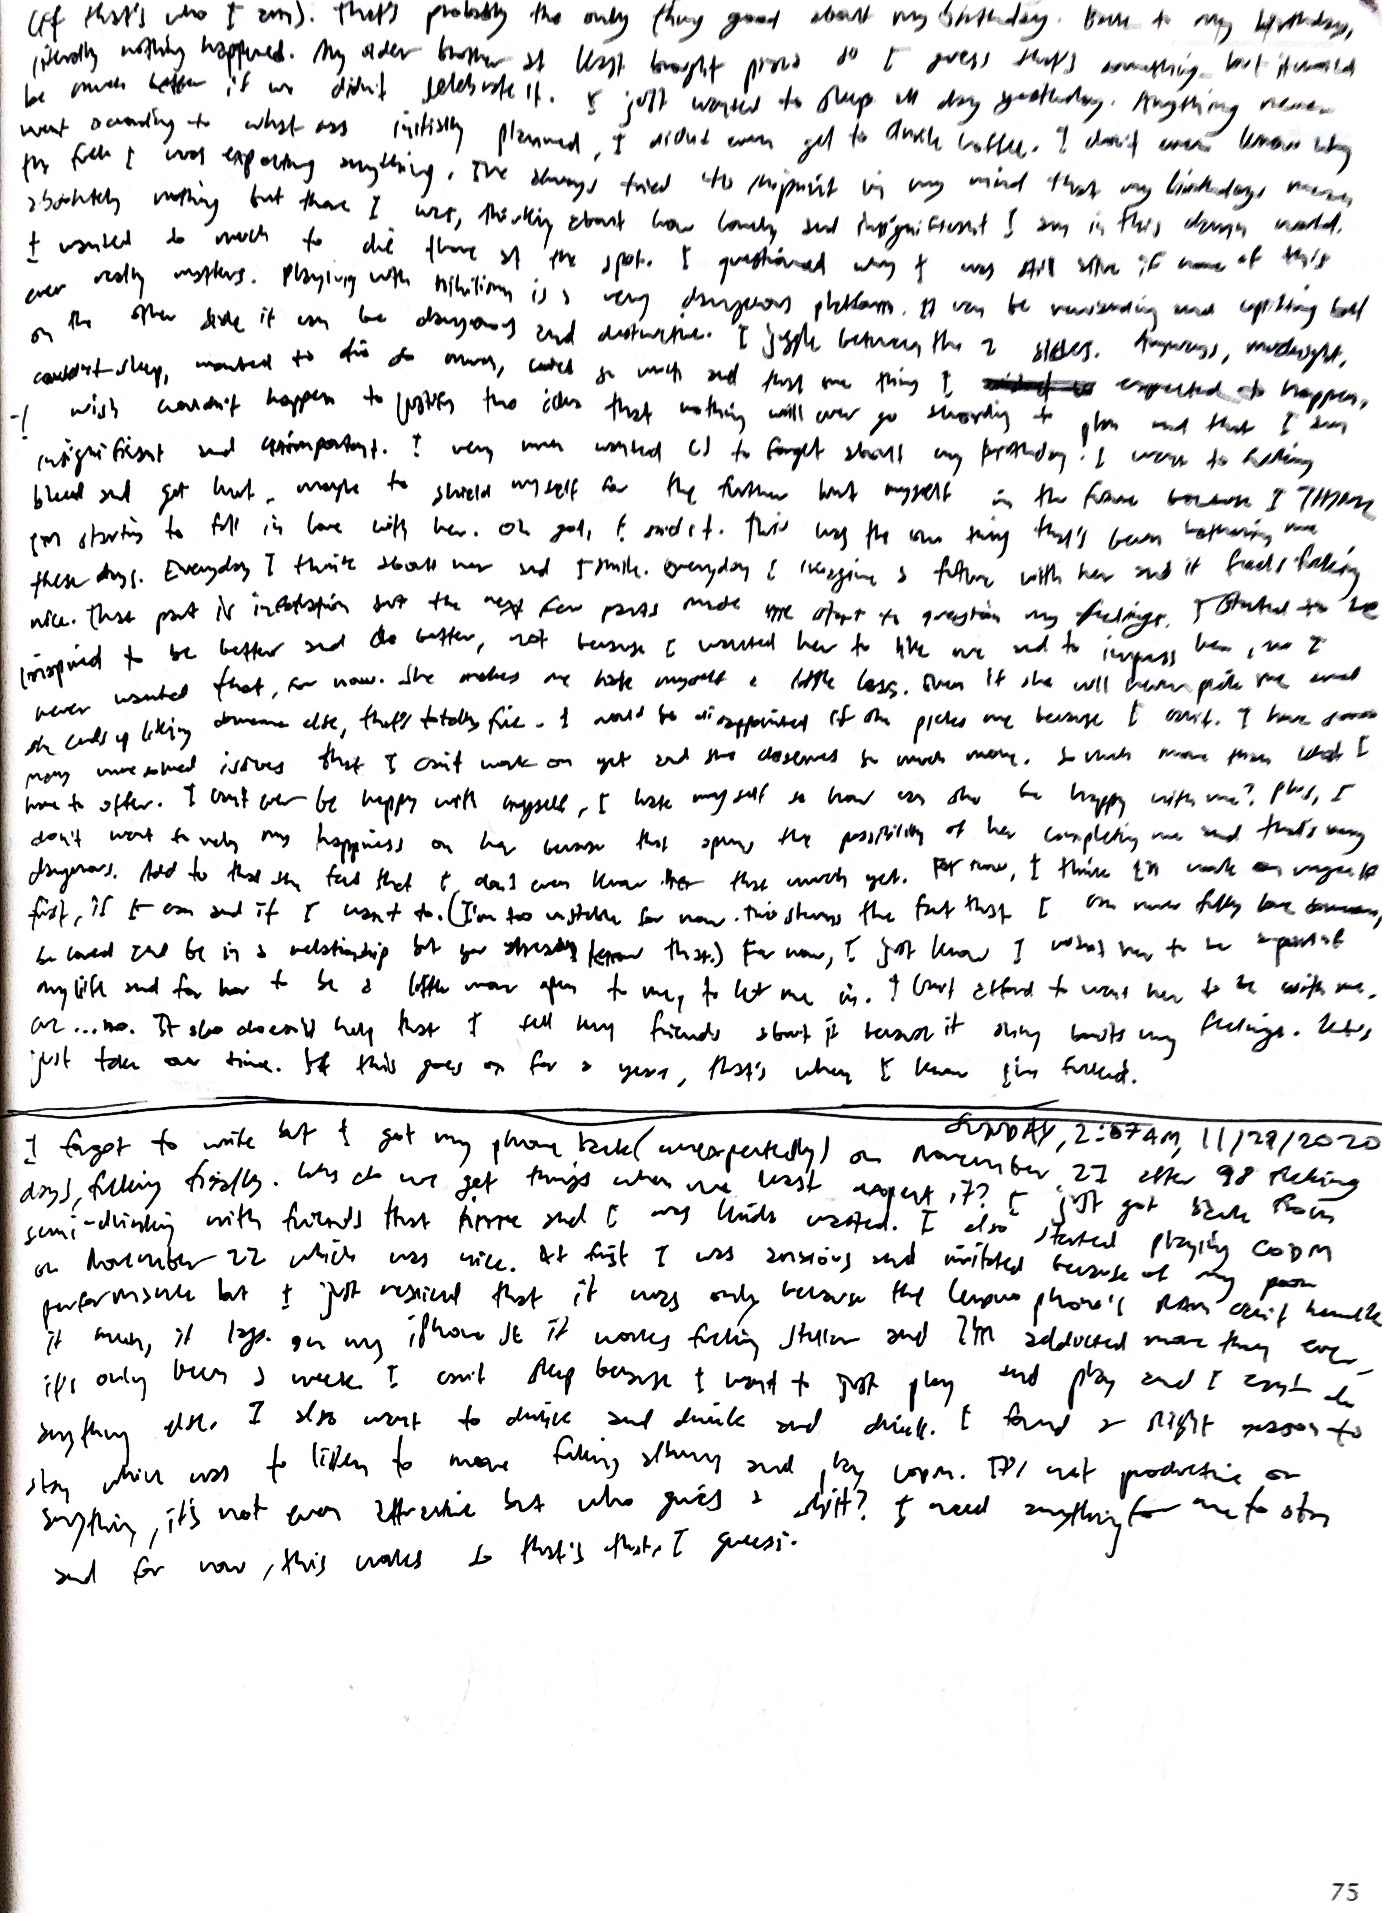 (if that's who I am). That's probably the only thing good about my birthday. Back to my birthday,
literally nothing happened. My older brother at least bought pizza so I guess that's something but it would
be much better if we didn't celebrate it. I just wanted to sleep all day yesterday. Anything never
went according to what was initially planned, I didn't even get to drink coffee. I don't even know why
the fuck I was expecting anything. I've always tried to imprint in my mind that my birthdays mean
absolutely nothing but there I was, thinking about how lonely and insignificant I am in this damn world.
I wanted so much to die there at the spot. I questioned why I was still alive if none of this
ever really matters. Playing with nihilism is a very dangerous platform. It can be rewarding and uplifting but
on the other side it can be dangerous and destructive. I juggle between the 2 sides. Anyways, midnight,
couldn't sleep, wanted to die so much, cried so much and that one thing I expected to happen,
I wish wouldn't happen to justify the idea that nothing will ever go according to plan and that I am
insignificant and unimportant. I very much wanted CJ to forget about my birthday. I want to fucking
bleed and get hurt, maybe to shield myself for the further hurt myself in the future because I THINK
I'm starting to fall in love with her. Oh god, I said it. This was the one thing that's been bothering me
these days. Everyday I think about her and I smile. Everyday I imagine a future with her and it feels fucking
nice. That part is infatuation but the next few parts made me start to question my feelings. I started to be
inspired to be better and do better, not because I wanted her to like me and to impress her, no I
never wanted that, for now. She makes me hate myself a little less. Even if she will never pick me and
she ends up liking someone else, that's totally fine. I would be disappointed if she picks me because I can't. I have
many unresolved issues that I can't work on yet and she deserves so much more. So much more than what I
have to offer. I can't ever be happy with myself, I hate myself so how can she be happy with me? Plus, I
don't want to rely my happiness on her because that opens the possibility of her completing me and that's very
dangerous. Add to that the fact that I don't even know her that much yet. For now, I think I'll work on myself
first, if I can and if I want to. (I'm too unstable for now. This shows the fact that I can never fully love someone,
be loved and be in a relationship but you already know that.) For now, I just know I want her to be a part of
my life and for her to be a little more open to me, to let me in. I can't afford to want her to be with me.
or...no. It also doesn't help that I tell my friends about it because it only boosts my feelings. Let's
just take our time. If this goes on for a year, that's when I know I'm fucked.
SUNDAY, 2:07AM, 11/29/2020
I forgot to write but I got my phone back (unexpectedly) on November 21 after 98 fucking
days, fucking finally. Why do we get things when we least expect it? I just got back from
semi-drinking with friends that time and I was kinda wasted. I also started playing CODM
on November 22 which was nice. At first I was anxious and irritated because of my poor
performance but I just realized that it was only because the Lenovo phone's RAM can't handle
it much, it lags. On my iPhone SE it works fucking stellar and I'm addicted more than ever,
it's only been a week. I can't sleep because I want to just play and play and I can't do
anything else. I also want to drink and drink and drink. I found a slight reason to
stay which was to listen to more fucking albums and play CODM. It's not productive or
anything, it's not even attractive but who gives a shit? I need anything for me to stay
and for now, this works so that's that, I guess.
75